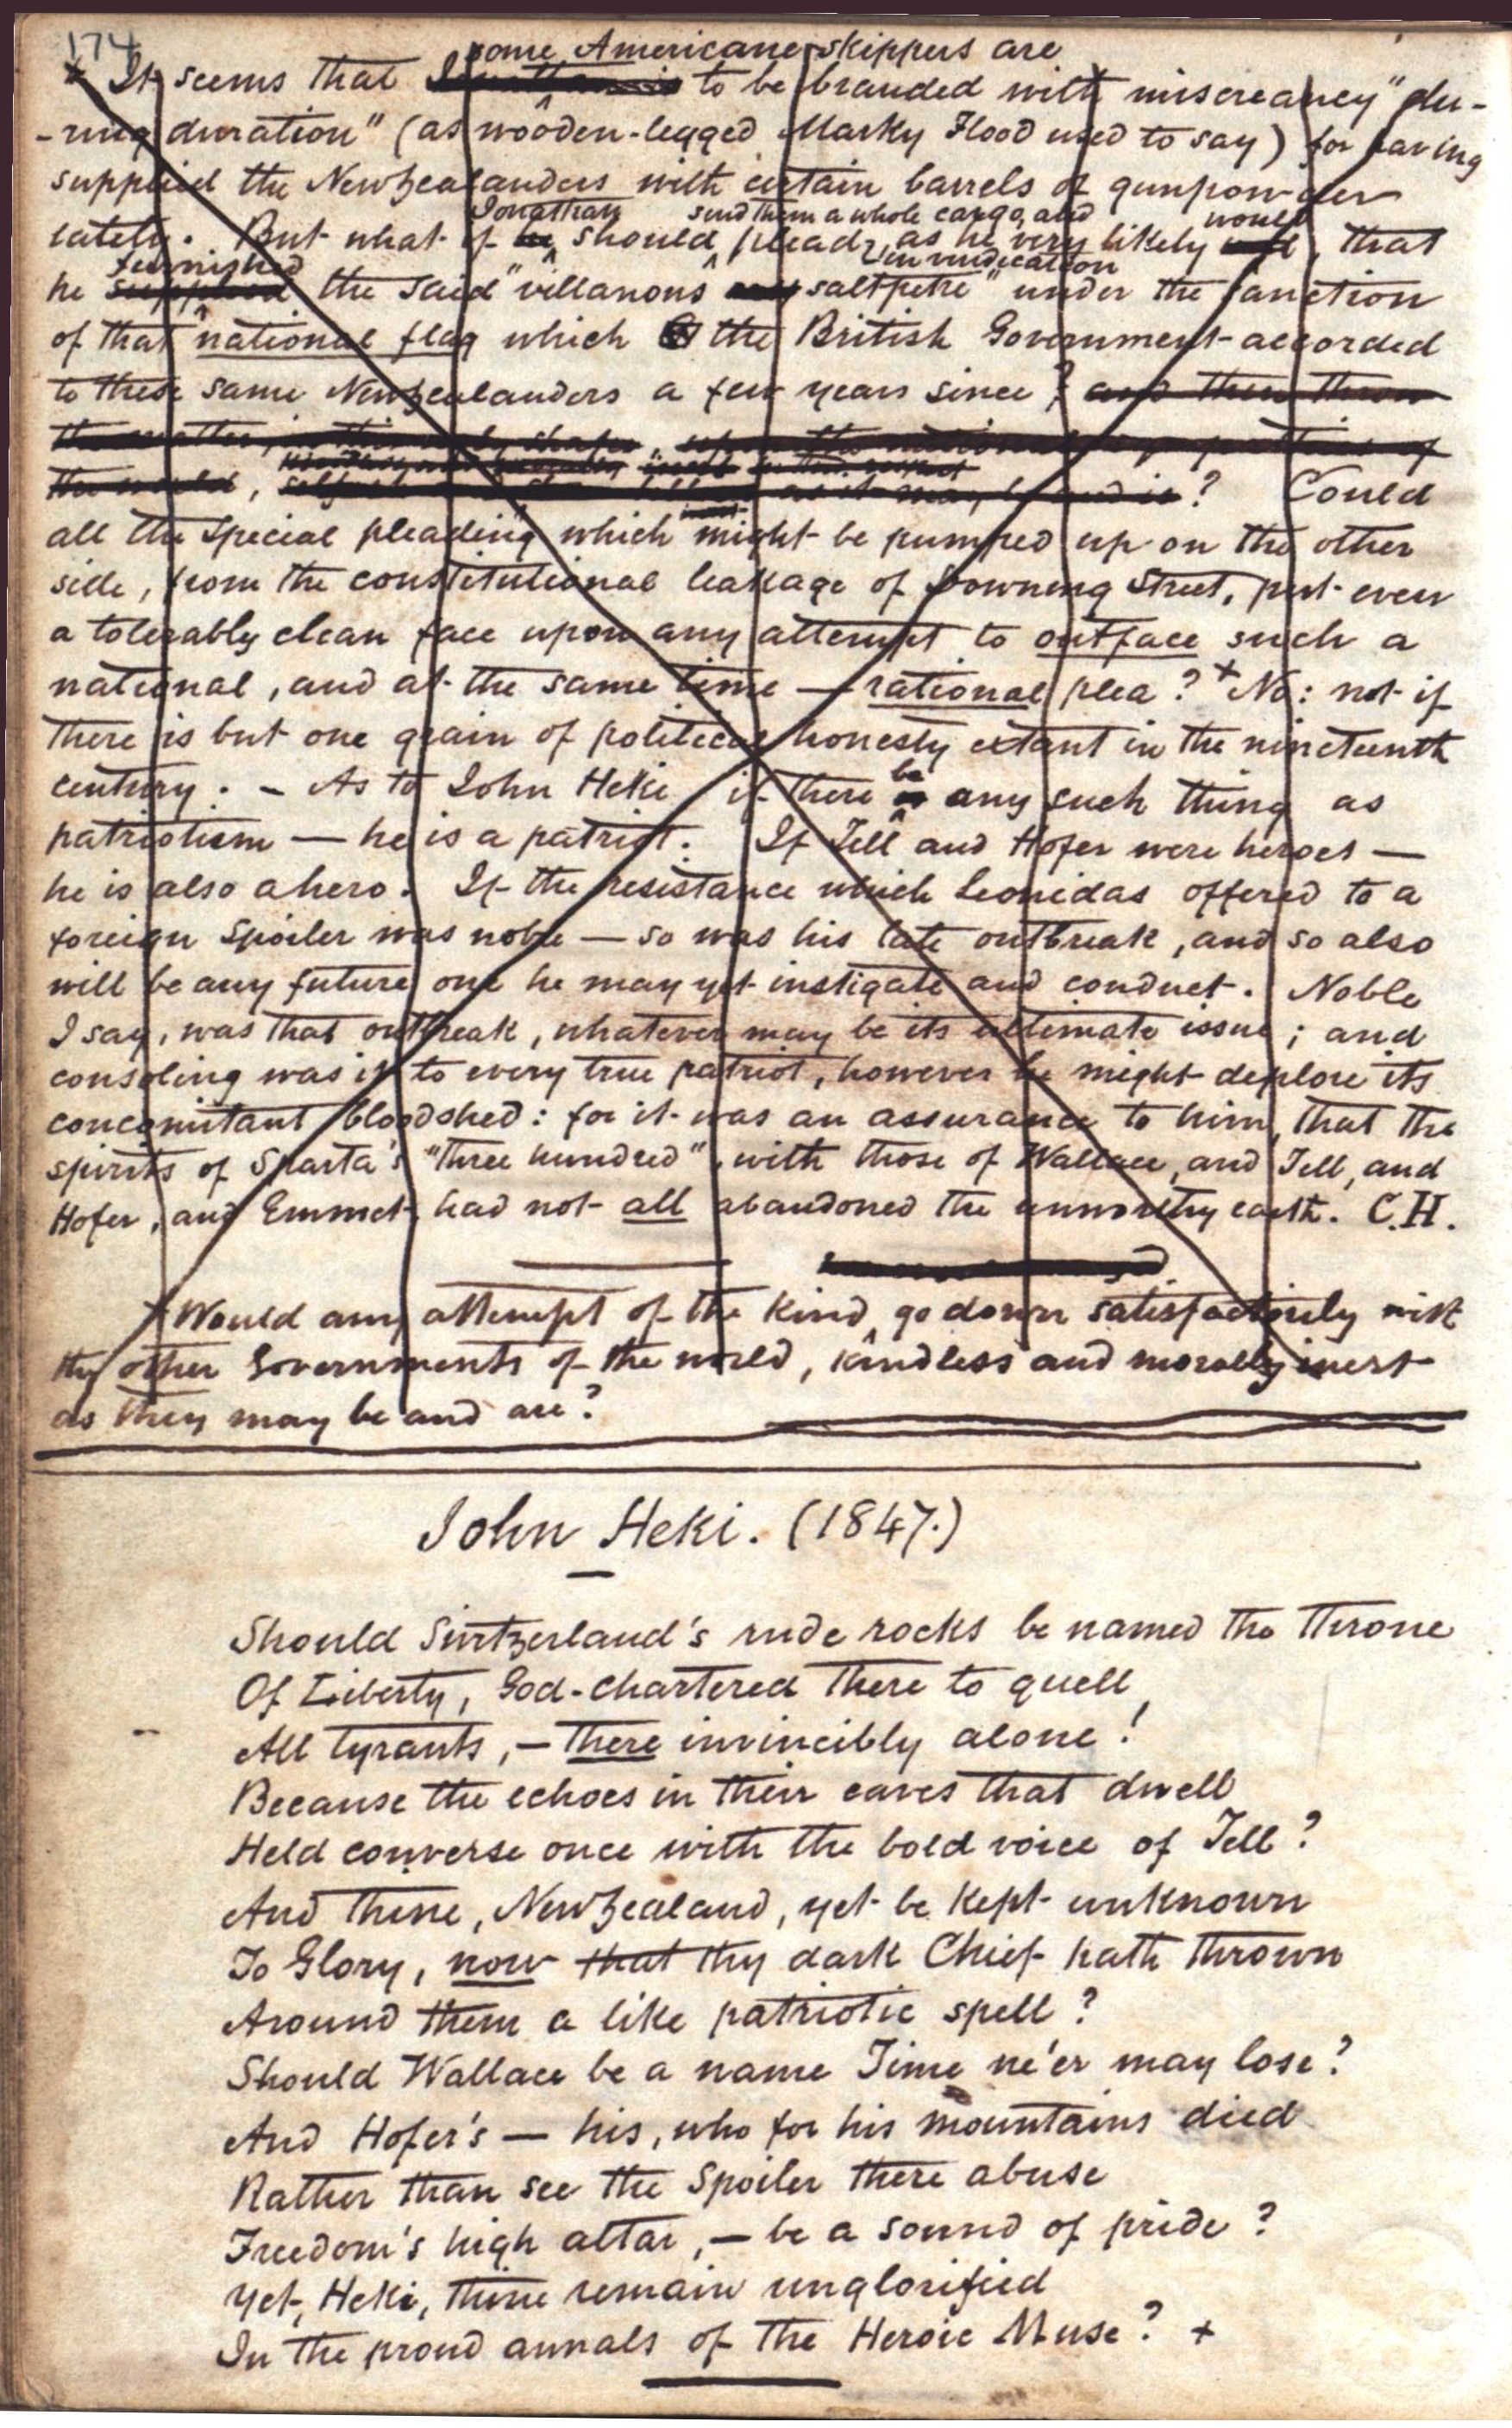 174
some American skippers are
It seems that to be branded with miscreancy "du-
-ring duration" (as wooden-legged Marky Flood used to say) for having
supplied the New Zealanders with certain barrels of gunpowder
Jonathan send them a whole cargo, and would
lately. But what if he should plead, as he very likely, that
furnished in vindication
he supplied the said "villanous saltpetre" under the sanction
of that national flag which the British Government accorded
to these same New Zealanders a few years since? and then throw
the matter, in this only shape,
the world, as it may be and is? Could
all the special pleading which might be pumped up on the other
side, from the constitutional leakage of Downing Street, put even
a tolerably clean face upon any attempt to outface such a
national, and at the same time — rational plea? + No: not if
there is but one grain of political honesty extant in the nineteenth
century. – As to John Heki if there be any such thing as
patriotism — he is a patriot. If Tell and Hofer were heroes —
he is also a hero. If the resistance which Leonidas offered to a
foreign spoiler was noble — so was his late outbreak, and so also
will be any future one he may yet instigate and conduct. Noble
I say, was that outbreak, whatever may be its ultimate issue; and
consoling was it to every true patriot, however he might deplore its
concomitant bloodshed: for it was an assurance to him, that the
spirits of Sparta's "three hundred", with those of Wallace, and Tell, and
Hofer, and Emmet, had not all abandoned the unworthy earth. C.H.
+ Would any attempt of the kind go down satisfactorily with
the other Governments of the world, kindless and morally inert
as they may be and are?
John Heki. (1847.)
Should Switzerland's rude rocks be named the Throne
Of Liberty, God-chartered there to quell
All tyrants, — there invincibly alone!
Because the echoes in their caves that dwell
Held converse once with the bold voice of Tell?
And thine, New Zealand, yet be kept unknown
To Glory, now that thy dark Chief hath thrown
Around them a like patriotic spell?
Should Wallace be a name Time ne'er may lose?
And Hofer's — his, who for his mountains died
Rather than see the Spoiler there abuse
Freedom's high altar, — be a sound of pride?
Yet, Heki, thine remain unglorified
In the proud annals of the Heroic Muse? +